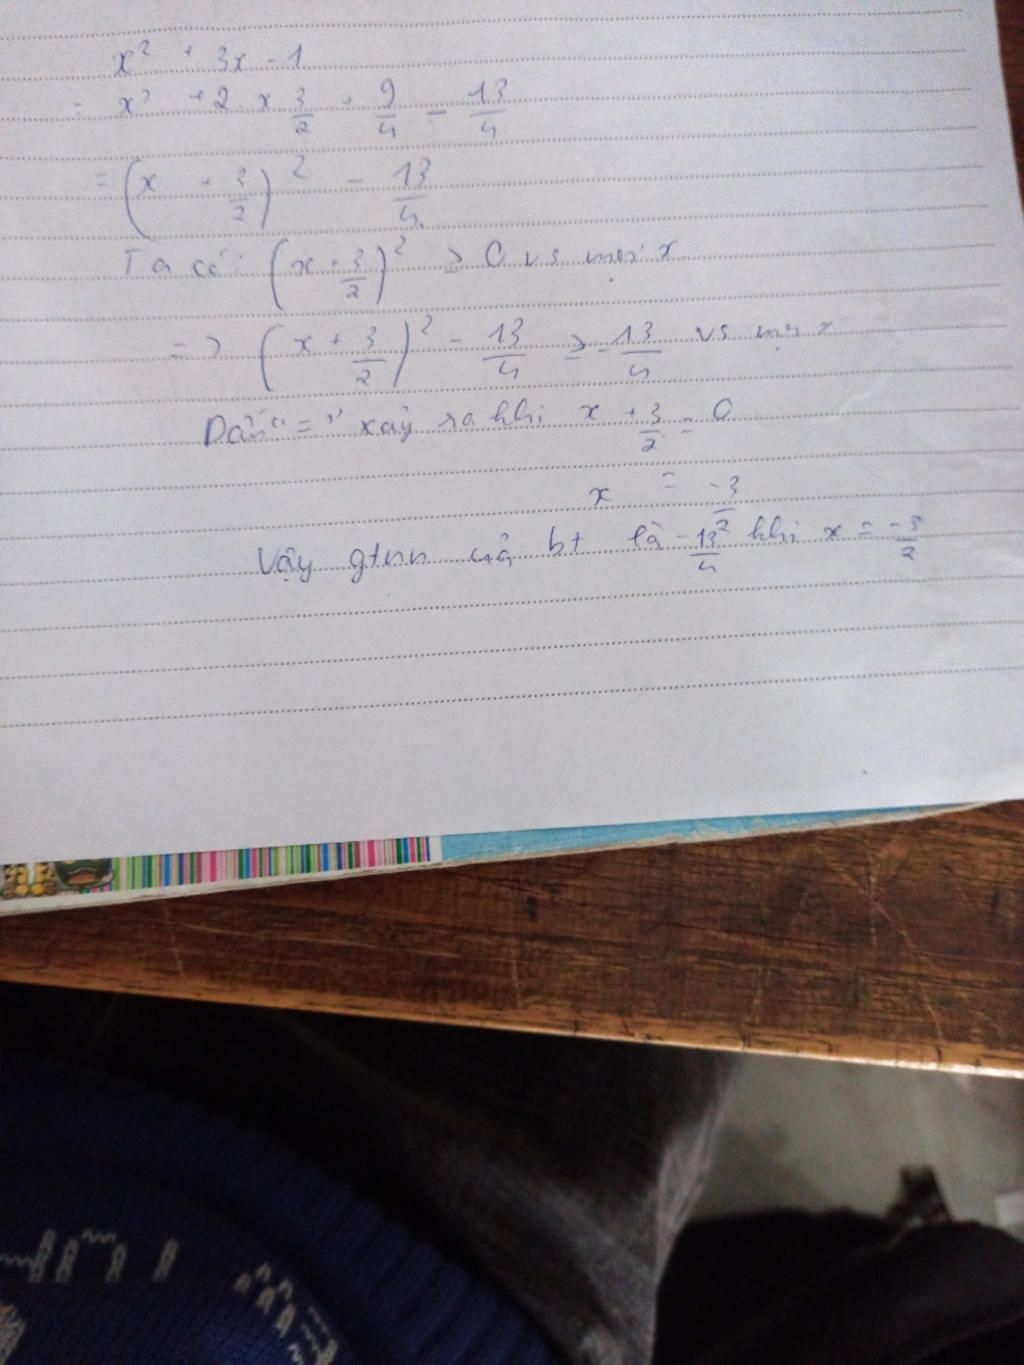 x² + 3x - 1
= x² + 2 x 3/2 + 9/4 - 13/4
= (x + 3/2)² - 13/4
Ta có: (x + 3/2)² ≥ 0 vs mọi x
=> (x + 3/2)² - 13/4 ≥ -13/4 vs mọi x
Dấu "=" xảy ra khi x + 3/2 = 0
x = -3/2
Vậy gtnn của bt là -13/4 khi x = -3/2